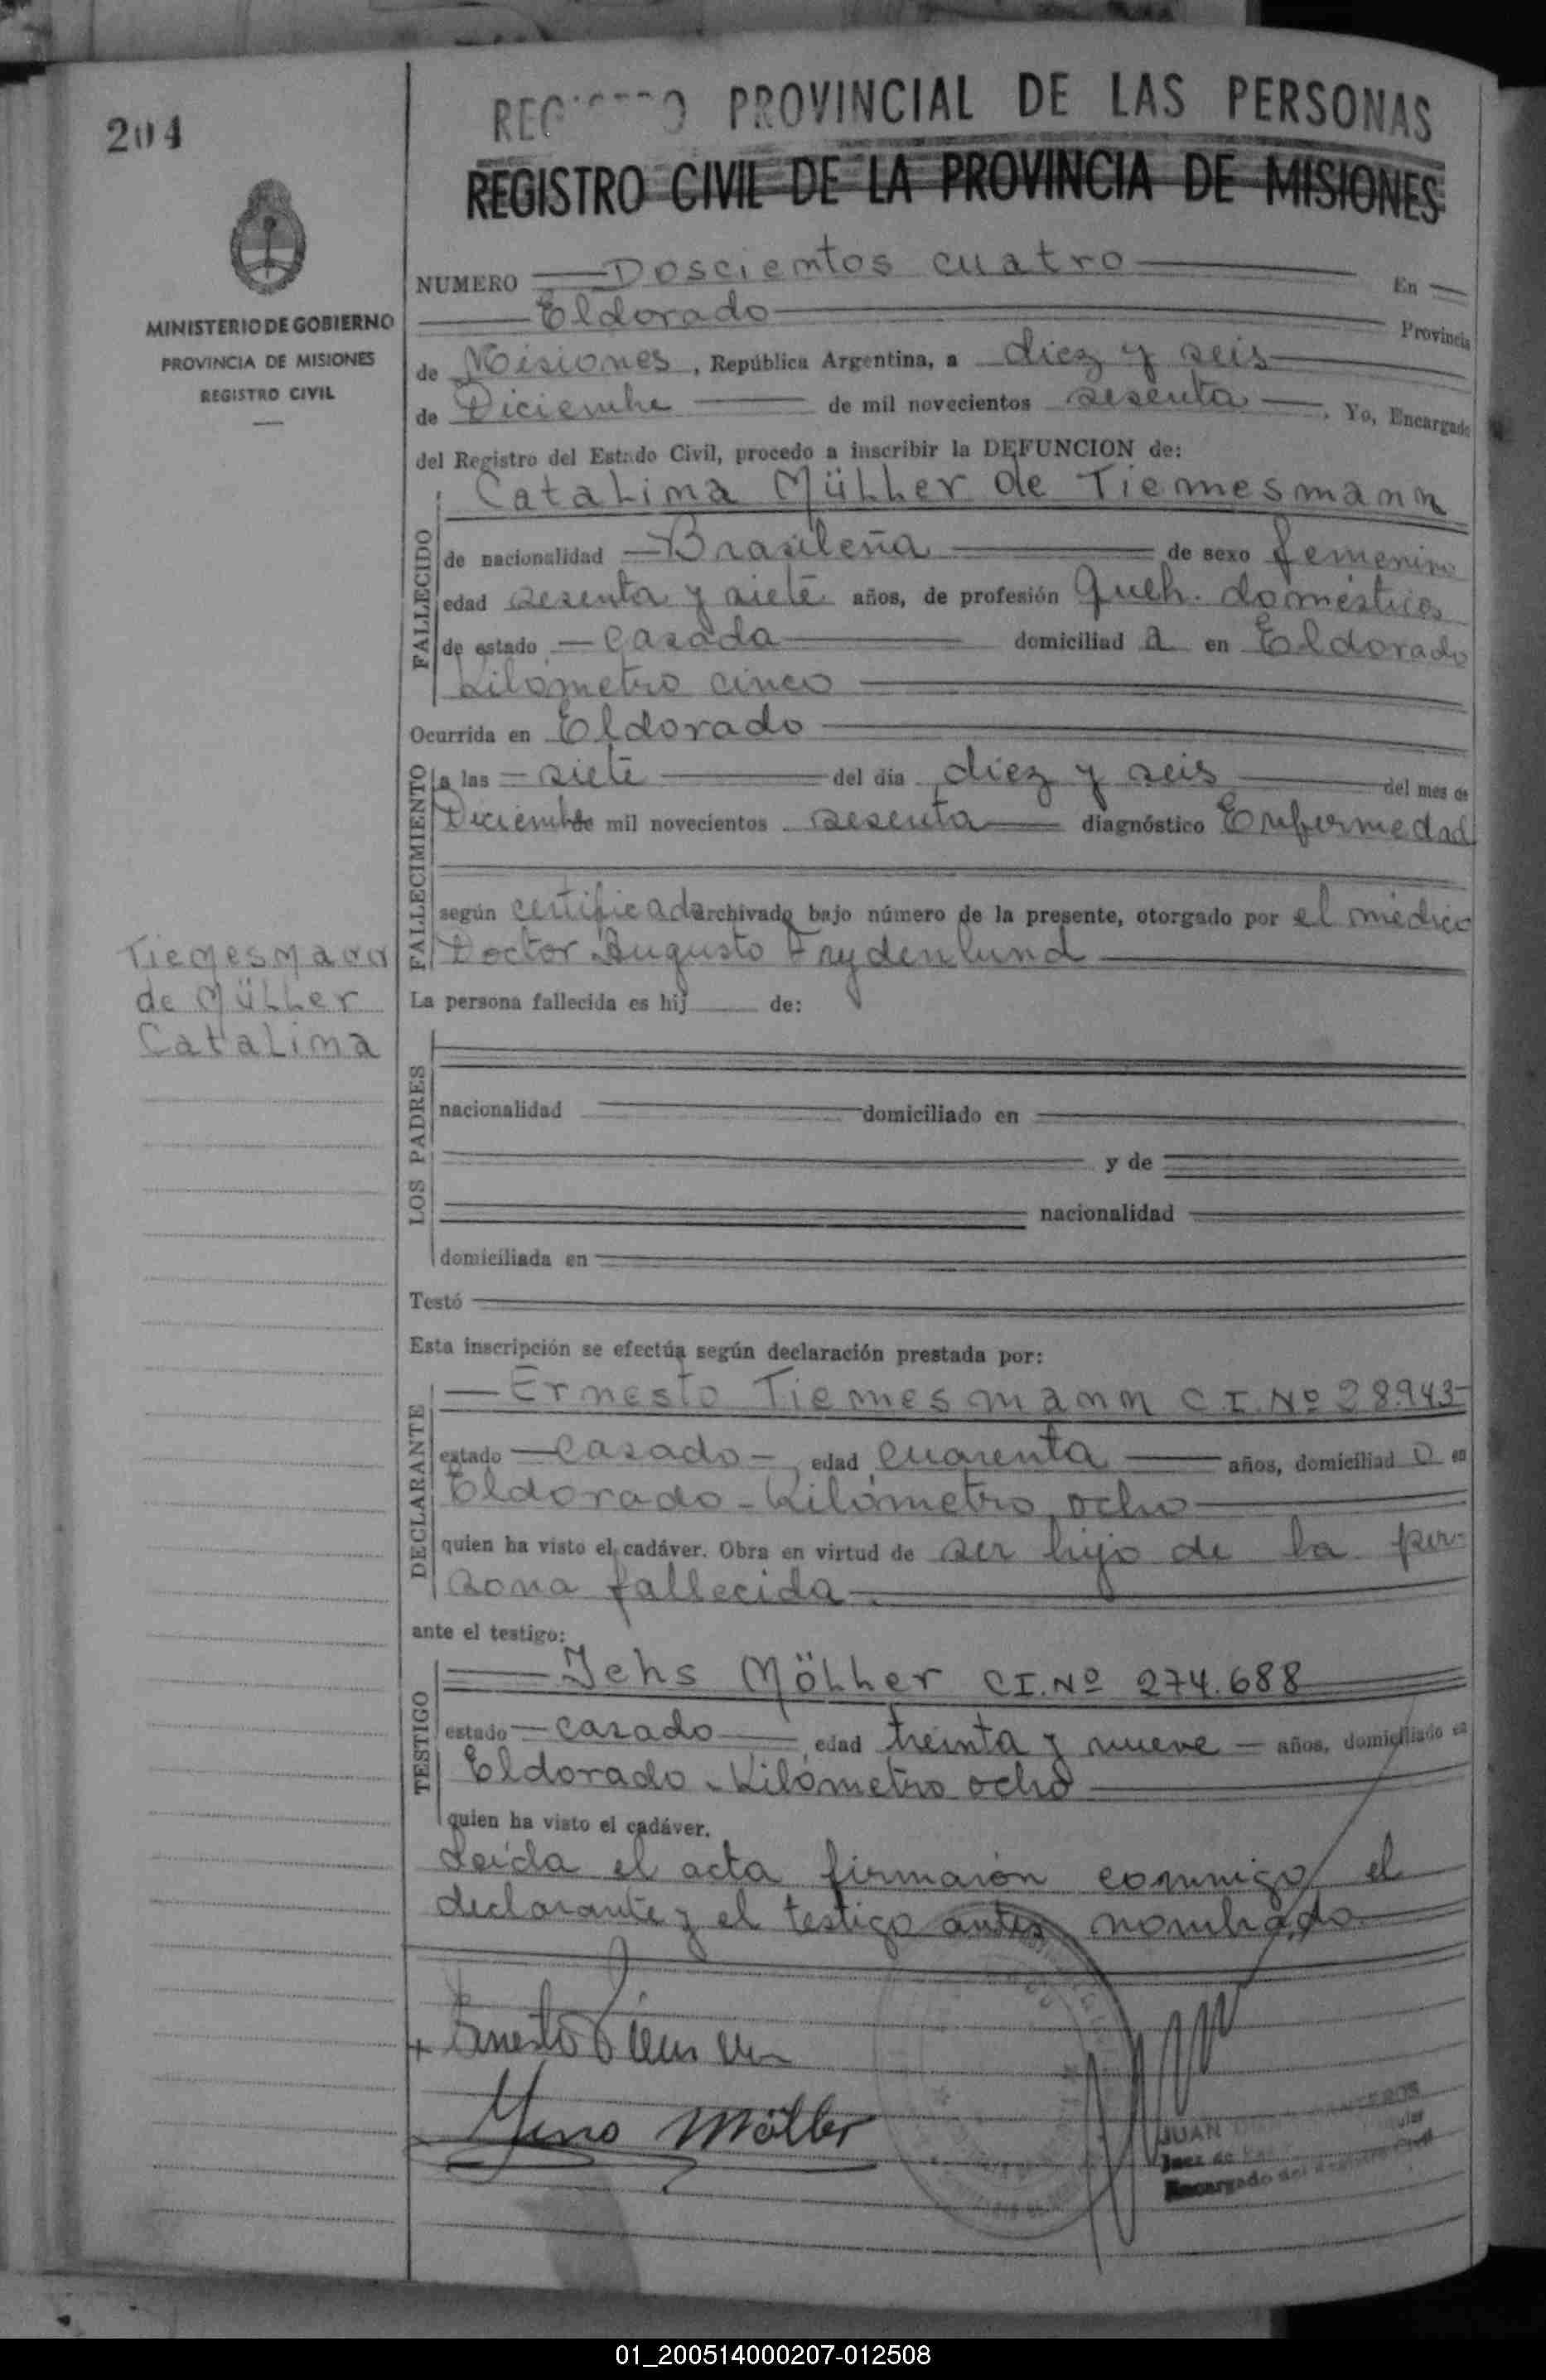 204
PROVINCIAL DE LAS PERSONAS
REGISTRO CIVIL DE LA PROVINCIA DE MISIONES
MINISTERIO DE GOBIERNO
PROVINCIA DE MISIONES
REGISTRO CIVIL
NUMERO Doscientos cuatro En
Eldorado Provincia
de Misiones, República Argentina, a diez y seis
de Diciembre de mil novecientos sesenta, Yo, Encargado
del Registro del Estado Civil, procedo a inscribir la DEFUNCION de:
FALLECIDO
Catalina Müller de Tiemesmann
de nacionalidad Brasileña de sexo femenino
edad sesenta y siete años, de profesión Queh. domésticos
de estado casada domiciliad a en Eldorado
Kilometro cinco
Ocurrida en Eldorado
FALLECIMIENTO
a las siete del dia diez y seis del mes de
Diciembre mil novecientos sesenta diagnóstico Enfermedad
según certificado archivado bajo número de la presente, otorgado por el médico
Doctor Augusto Frydenlund
Tiemesmann
de Müller
Catalina
La persona fallecida es hij de:
LOS PADRES
nacionalidad domiciliado en
y de
nacionalidad
domiciliada en
Testó
Esta inscripción se efectúa según declaración prestada por:
DECLARANTE
Ernesto Tiemesmann C.I. Nº 28.943
estado casado, edad cuarenta años, domiciliad o en
Eldorado - Kilómetro ocho
quien ha visto el cadáver. Obra en virtud de ser hijo de la per-
sona fallecida.
ante el testigo:
TESTIGO
Jehs Möller CI. Nº 274.688
estado casado, edad treinta y nueve años, domiciliado en
Eldorado - Kilómetro ocho
quien ha visto el cadáver.
Leída el acta firmaron conmigo el
declarante y el testigo antes nombrado.
Ernesto
Möller
JUAN
Juez de Paz
Encargado del Registro Civil
01_200514000207-012508